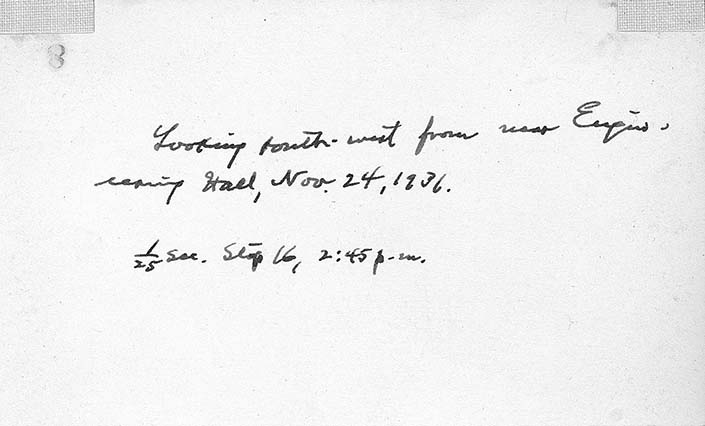 8
Looking south-west from near Engin-
eering Hall, Nov. 24, 1936.
1/25 sec. Stop 16, 2:45 p.m.